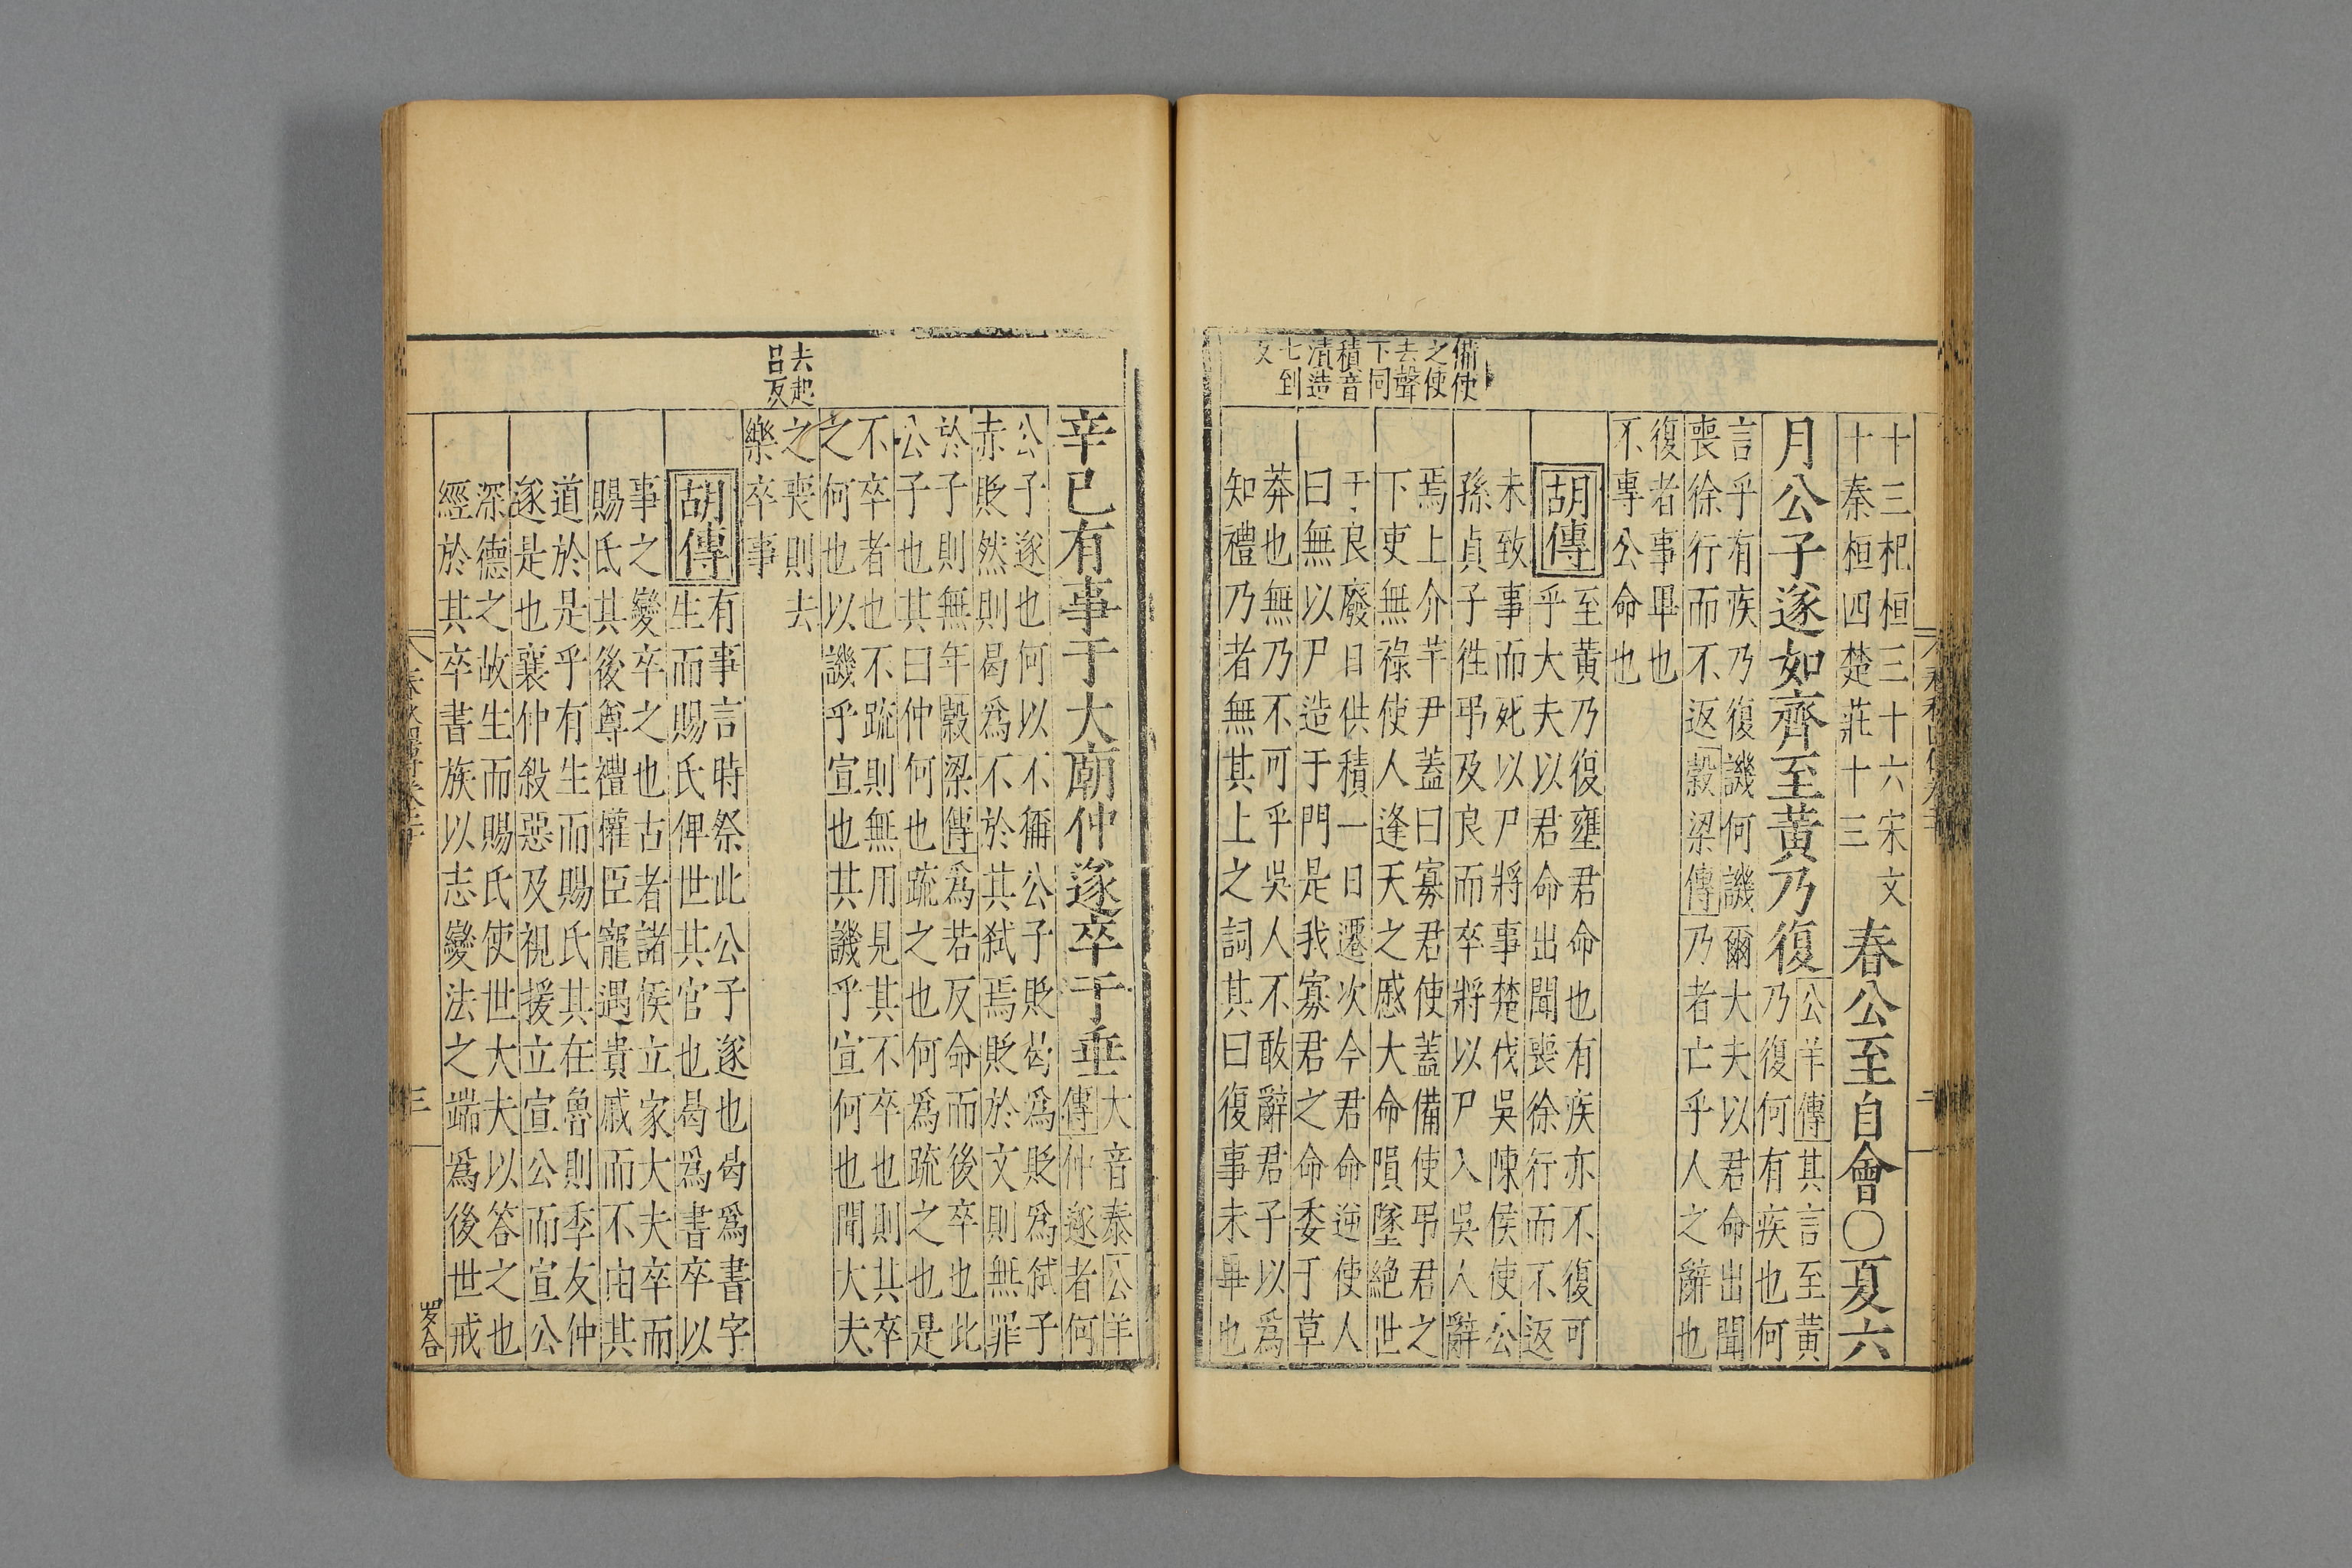 十三杞桓三十六宋文
十秦桓四楚莊十三
春公至自會〇夏六
月公子遂如齊至黃乃復
公羊傳其言至黃
乃復何有疾也何
言乎有疾乃復譏何譏爾大夫以君命出聞
喪徐行而不返穀梁傳乃者亡乎人之辭也
復者事畢也
不專公命也
胡傳
至黃乃復壅君命也有疾亦不復可
乎大夫以君命出聞喪徐行而不返
未致事而死以尸將事楚伐吳陳侯使公
孫貞子徃弔及良而卒將以尸入吳人辭
焉上介芊尹蓋曰寡君使蓋備使弔君之
下吏無祿使人逢天之慼大命隕墜絕世
于良廢日供積一日遷次今君命逆使人
曰無以尸造于門是我寡君之命委于草
莽也無乃不可乎吳人不敢辭君子以爲
知禮乃者無其上之詞其曰復事未畢也
備使
之使
去聲
下同
積音
漬造
七到
反
辛已有事于大廟仲遂卒于垂
大音泰公羊
傳仲遂者何
公子遂也何以不稱公子貶曷爲貶爲弑子
赤貶然則曷爲不於其弑焉貶於文則無罪
於子則無年穀梁傳爲若反命而後卒也此
公子也其曰仲何也疏之也何爲疏之也是
不卒者也不疏則無用見其不卒也則其卒
之何也以譏乎宣也其譏乎宣何也聞大夫
之喪則去
樂卒事
去起
呂反
胡傳
有事言時祭此公子遂也曷爲書字
生而賜氏俾世其官也曷爲書卒以
事之變卒之也古者諸侯立家大夫卒而
賜氏其後尊禮權臣寵遇貴戚而不由其
道於是乎有生而賜氏其在魯則季友仲
遂是也襄仲殺惡及視援立宣公而宣公
深德之故生而賜氏使世大夫以答之也
經於其卒書族以志變法之端爲後世戒
三